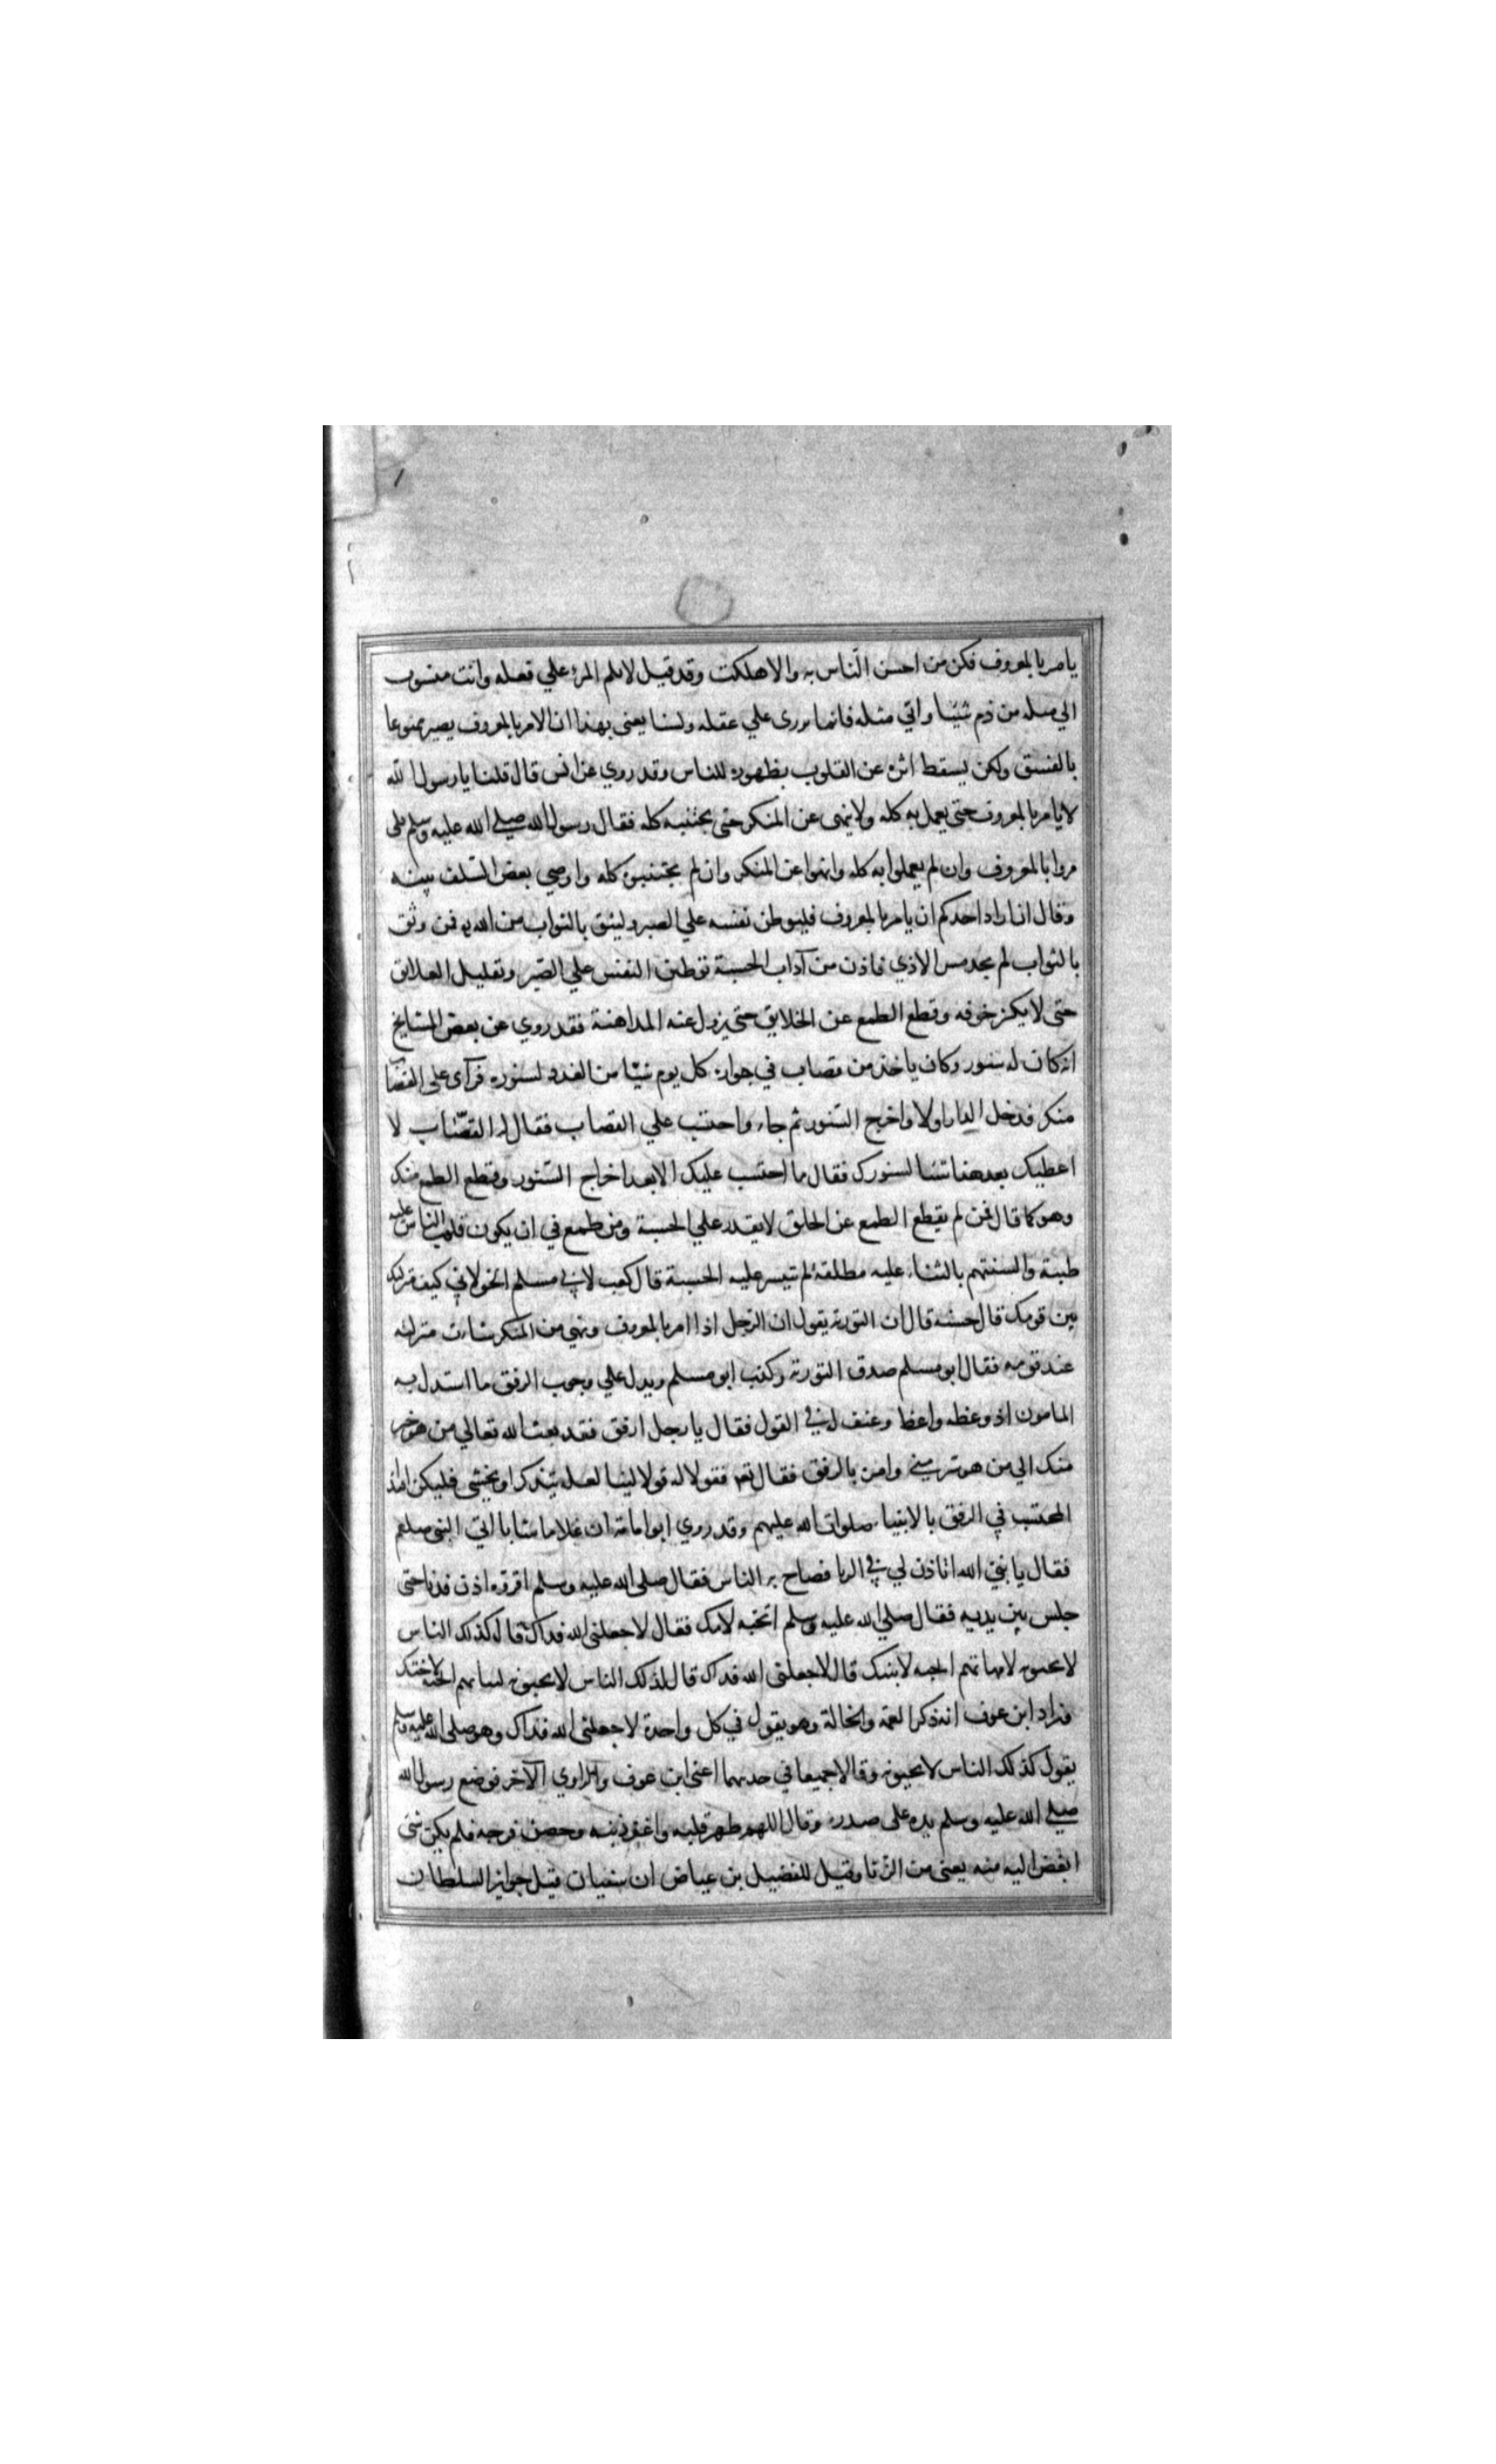 يامر بالمعروف فكن من احسن الناس به والا هلكت وقد قيل لا تلم المرء علي فعله وانت منسوب
الي مثله من ذم شيئا واتي مثله فانما يزري علي عقله ولسنا يعني بهذا ان الامر بالمعروف يصير ممنوعا
بالفسق ولكن يسقط اثره عن القلوب بظهوره للناس وقد روي عن انس قال قلنا يا رسول الله
لا نامر بالمعروف حتى يعمل به كله ولا ينهى عن المنكر حتى يجتنبه كله فقال رسول الله صلى الله عليه وسلم بلى
مروا بالمعروف وان لم يعملوا به كله وانهوا عن المنكر وان لم يجتنبوه كله واوصي بعض السلف بينه
وقال ان اراد احدكم ان يامر بالمعروف فليوطن نفسه علي الصبر وليثق بالثواب من الله به فمن وثق
بالثواب لم يجد مس الاذي فاذن من آداب الحسبة توطين النفس علي الصبر وتقليل العلايق
حتى لا يكثر خوفه وقطع الطمع عن الخلايق حتى يزول عنه المداهنة فقد روي عن بعض المشايخ
انه كان له سنور وكان ياخذ من قصاب في جواره كل يوم شيئا من الغدد لسنوره فرآى على القصاب
منكر فدخل الدار اولا واخرج السنور ثم جاء واحتسب علي القصاب فقال له القصاب لا
اعطيك بعد هذا شيئا لسنورك فقال ما احتسب عليك الا بعد اخراج السنور وقطع الطمع منك
وهو كما قال فمن لم يقطع الطمع عن الخلق لا يقدر علي الحسبة ومن طمع في ان يكون قلوب الناس عليه
طيبة والسنتهم بالثناء عليه مطلقة لم تتيسر عليه الحسبة قال كعب لابي مسلم الخولاني كيف منزلتك
بين قومك قال حسنة قال ان التورية يقول ان الرجل اذا امر بالمعروف ونهي من المنكر ساءت منزلته
عند قومه فقال ابو مسلم صدق التورته وكذب ابو مسلم ويدل علي وجوب الرفق ما استدل به
المامون اذ وعظه واعظ وعنف له في القول فقال يا رجل ارفق فقد بعث الله تعالي من هو خير
منك الي من هو شر مني وامره بالرفق فقال تعم فقولا له قولا لينا لعله يتذكر او يخشى فليكن اقتداء
المحتسب في الرفق بالانبياء صلوات الله عليهم وقد روي ابو امامة ان غلاما شابا اتي النبي صلعم
فقال يا نبي الله اتاذن لي في الزنا فصاح به الناس فقال صلى الله عليه وسلم اقروه اذن فدنا حتى
جلس بين يديه فقال صلي الله عليه وسلم اتحبه لامك فقال لا جعلني الله فداك قال كذلك الناس
لا يحبونه لامهاتهم اتحبه لابنتك قال لا جعلني الله فداك قال كذلك الناس لا يحبونه لبناتهم اتحبه لاختك
فزاد ابن عوف انه ذكر العمة والخالة وهو يقول في كل واحدة لا جعلني الله فداك وهو صلى الله عليه وسلم
يقول كذلك الناس لا يحبونه وقالا جميعا في حديثهما اعني ابن عوف والراوي الآخر فوضع رسول الله
صلي الله عليه وسلم يده على صدره وقال اللهم طهر قلبه واغفر ذنبه وحصن فرجه فلم يكن شئ
ابغض اليه منه يعني من الزنا وقيل للفضيل بن عياض ان سفيان قبل جوايز السلطان